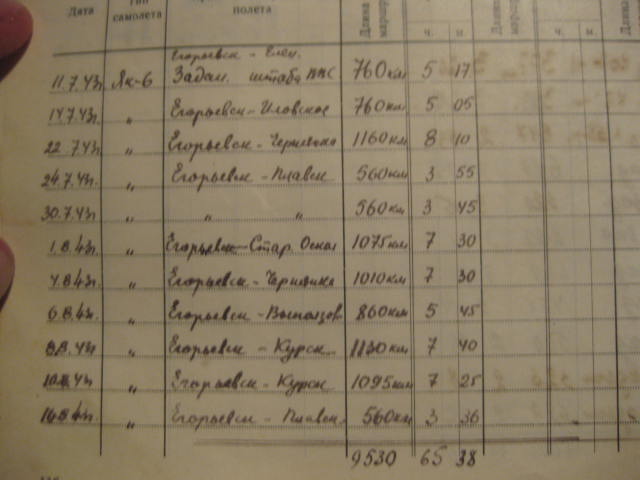 Дата
тип самолета
полета
Длина маршрута
ч. м.
Егорьевск - Елец.
11.7.43г. Як-6 Задан. штаба ВВС 760 км 5 17
14.7.43г. " Егорьевск - Иловское 760 км 5 05
22.7.43г. " Егорьевск - 1160 км 8 10
24.7.43г. " Егорьевск - Плавск 560 км 3 55
30.7.43г. " " " 560 км 3 45
1.8.43г. " Егорьевск - Стар. Оскол 1075 км 7 30
4.8.43г. " Егорьевск - 1010 км 7 30
6.8.43г. " Егорьевск - 860 км 5 45
8.8.43г. " Егорьевск - Курск 1130 км 7 40
" Егорьевск - Курск 1095 км 7 25
" Егорьевск - Плавск 560 км 3 36
9530 65 38